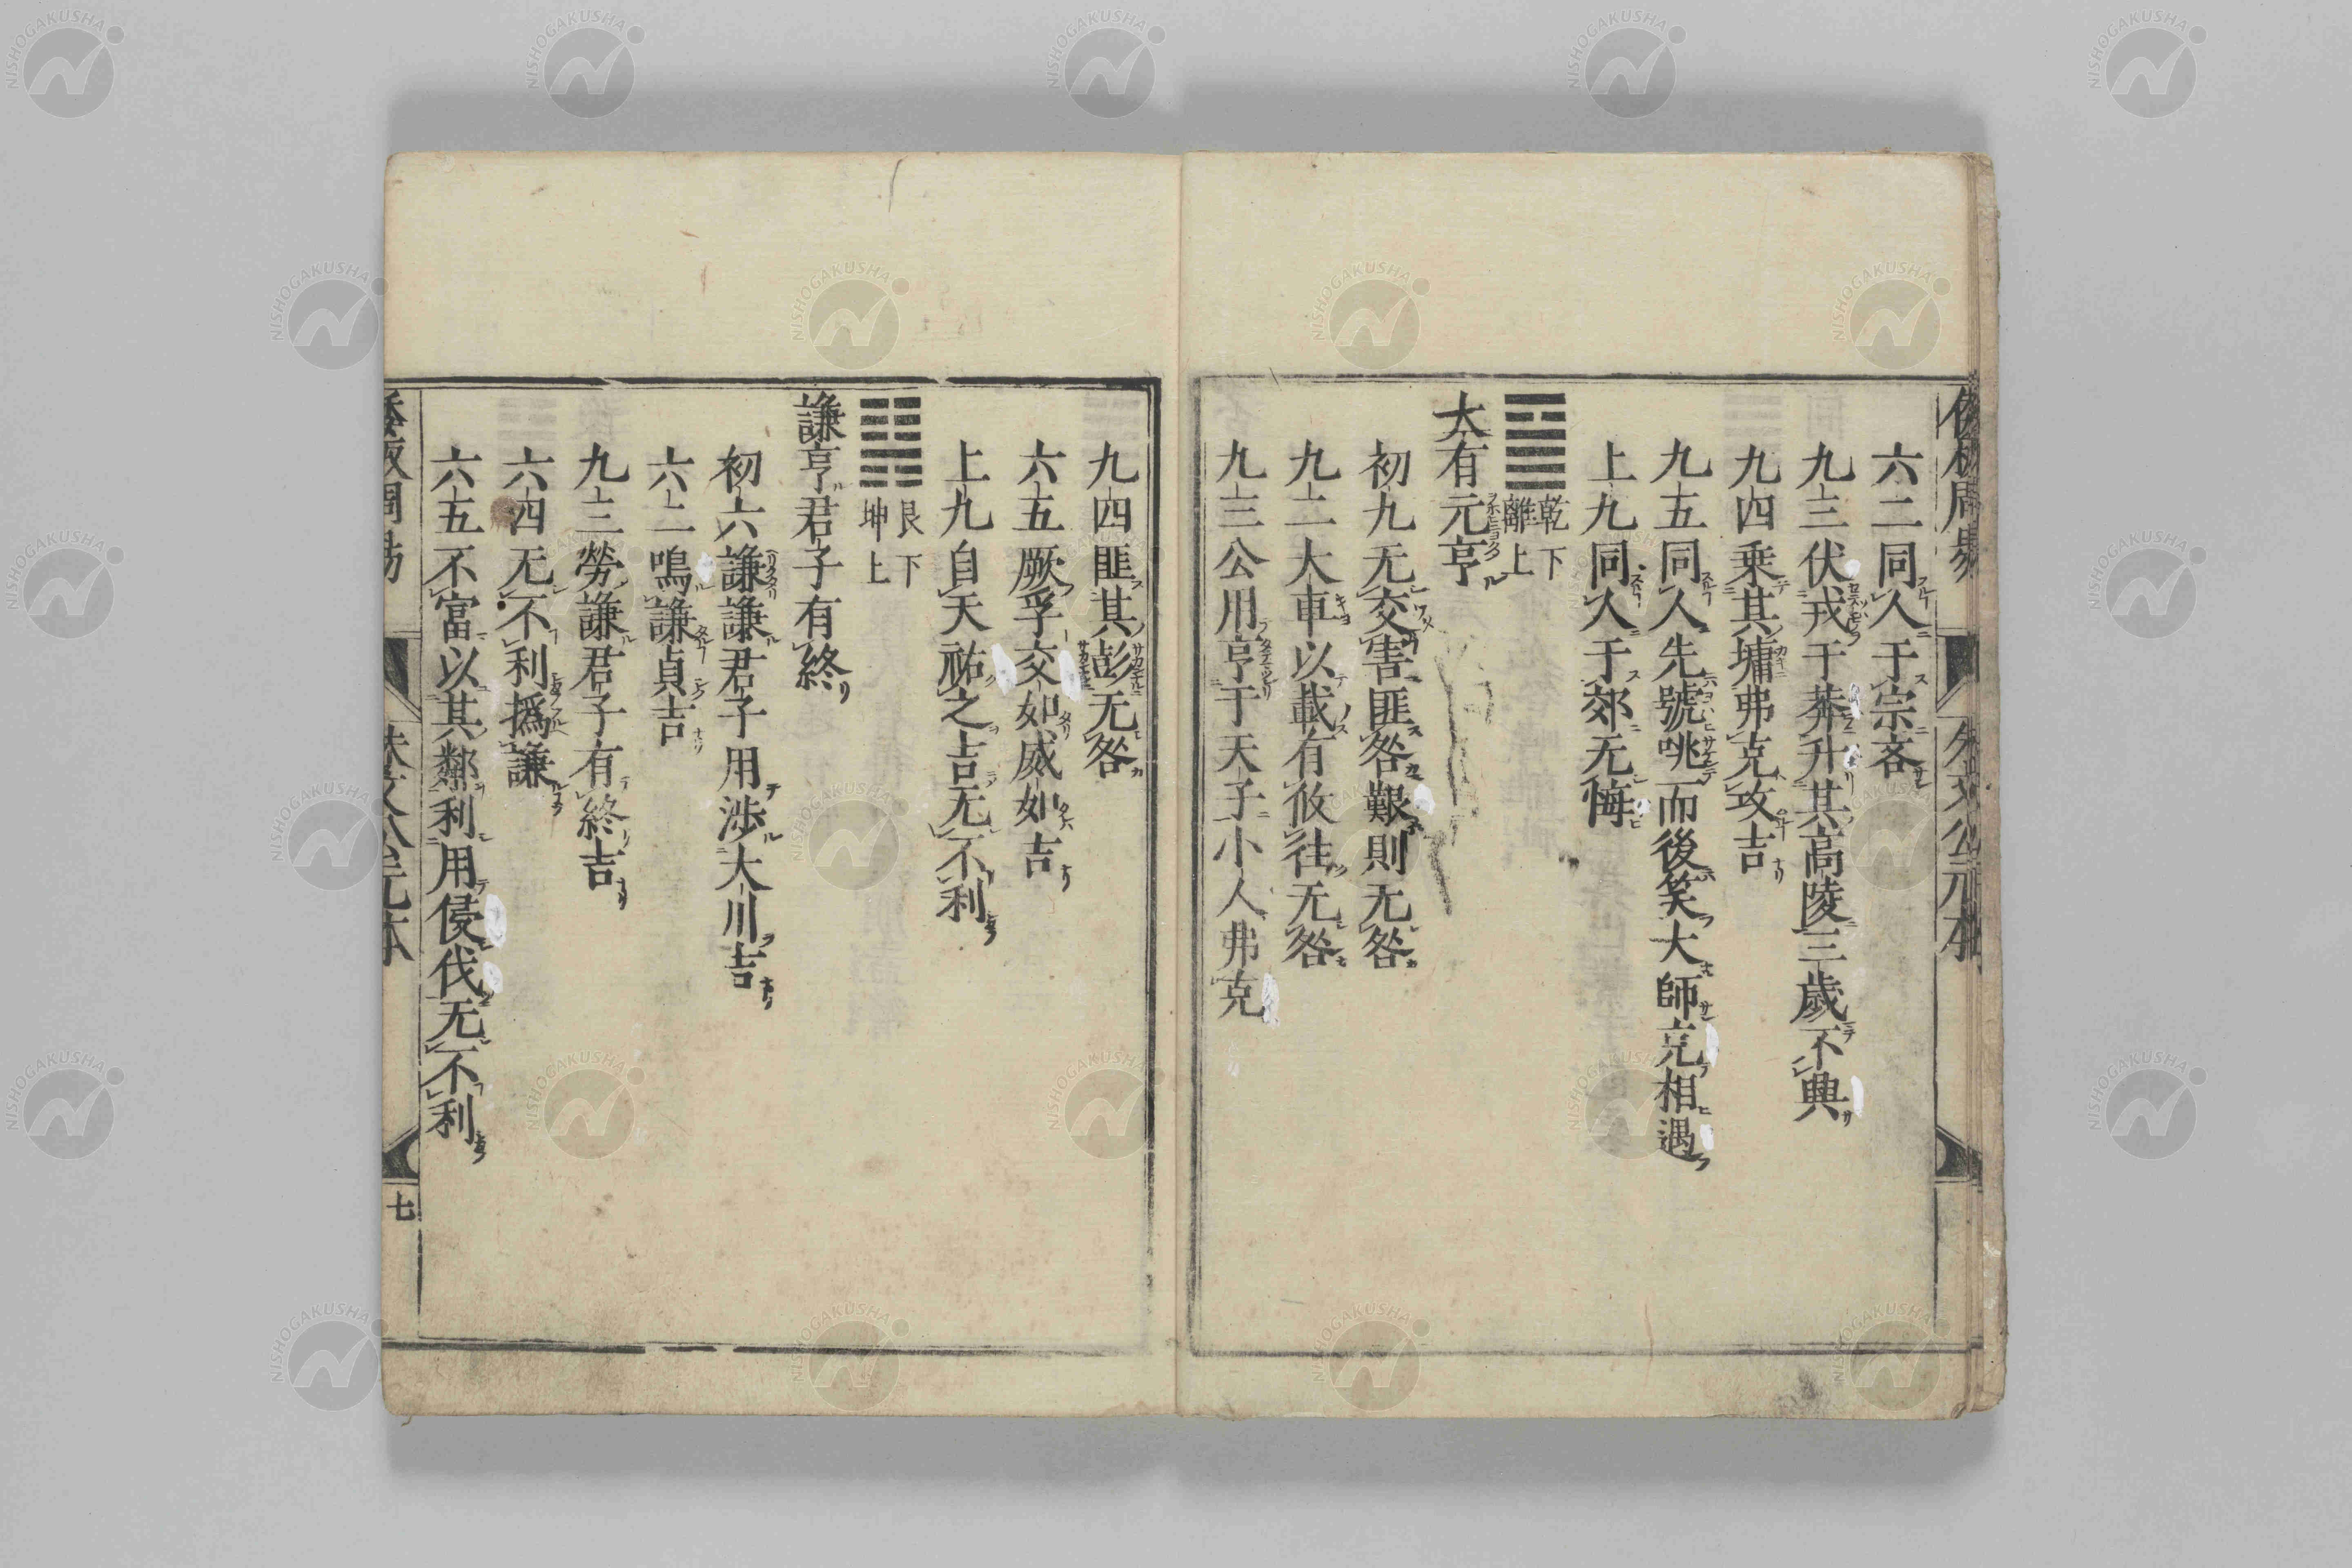 六二同人于宗吝
九三伏戎于莽升其高陵三歲不興
九四乗其墉弗克攻吉
九五同人先號咷而後笑大師克相遇
上九同人于郊无悔
乾下
離上
大有元亨
初九无交害匪咎艱則无咎
九二大車以載有攸往无咎
九三公用亨于天子小人弗克
九四匪其彭无咎
六五厥孚交如威如吉
上九自天祐之吉无不利
艮下
坤上
謙亨君子有終
初六謙謙君子用涉大川吉
六二鳴謙貞吉
九三勞謙君子有終吉
六四无不利撝謙
六五不富以其鄰利用侵伐无不利
七
NISHOGAKUSHA